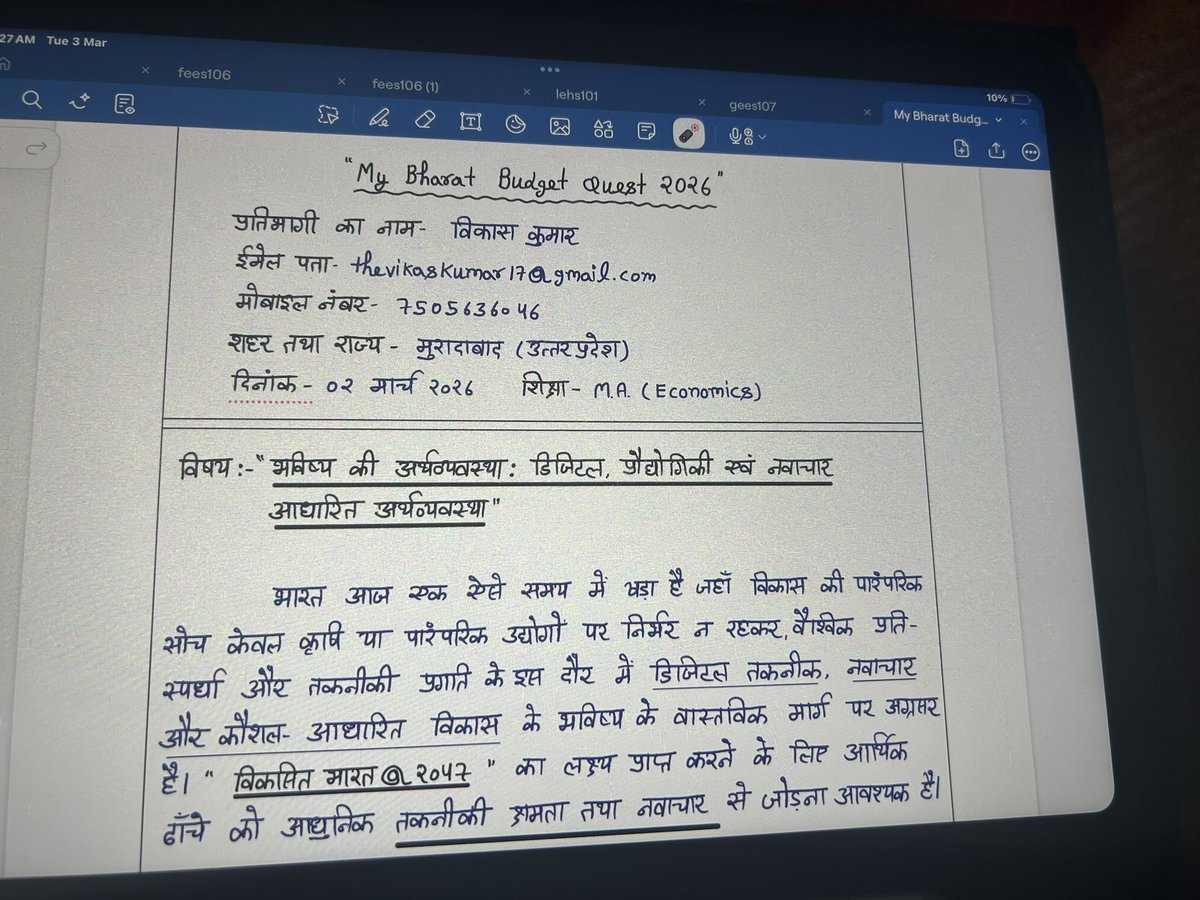 27 AM Tue 3 Mar
10%
fees106
fees106 (1)
lehs101
gees107
My Bharat Budg...
"My Bharat Budget Quest २०२6"
प्रतिभागी का नाम- विकास कुमार
ईमेल पता- thevikaskumar17@gmail.com
मोबाइल नंबर- 7505636046
शहर तथा राज्य - मुरादाबाद (उत्तर प्रदेश)
दिनांक - ०२ मार्च २०२6 शिक्षा - M.A. (Economics)
विषय :- "भविष्य की अर्थव्यवस्था : डिजिटल, प्रौद्योगिकी एवं नवाचार
आधारित अर्थव्यवस्था"
भारत आज एक ऐसे समय में खड़ा है जहाँ विकास की पारंपरिक
सोच केवल कृषि या पारंपरिक उद्योगों पर निर्भर न रहकर, वैश्विक प्रति-
स्पर्धा और तकनीकी प्रगति के इस दौर में डिजिटल तकनीक, नवाचार
और कौशल- आधारित विकास के भविष्य के वास्तविक मार्ग पर अग्रसर
है। "विकसित भारत @ २०47" का लक्ष्य प्राप्त करने के लिए आर्थिक
ढाँचे को आधुनिक तकनीकी क्षमता तथा नवाचार से जोड़ना आवश्यक है।